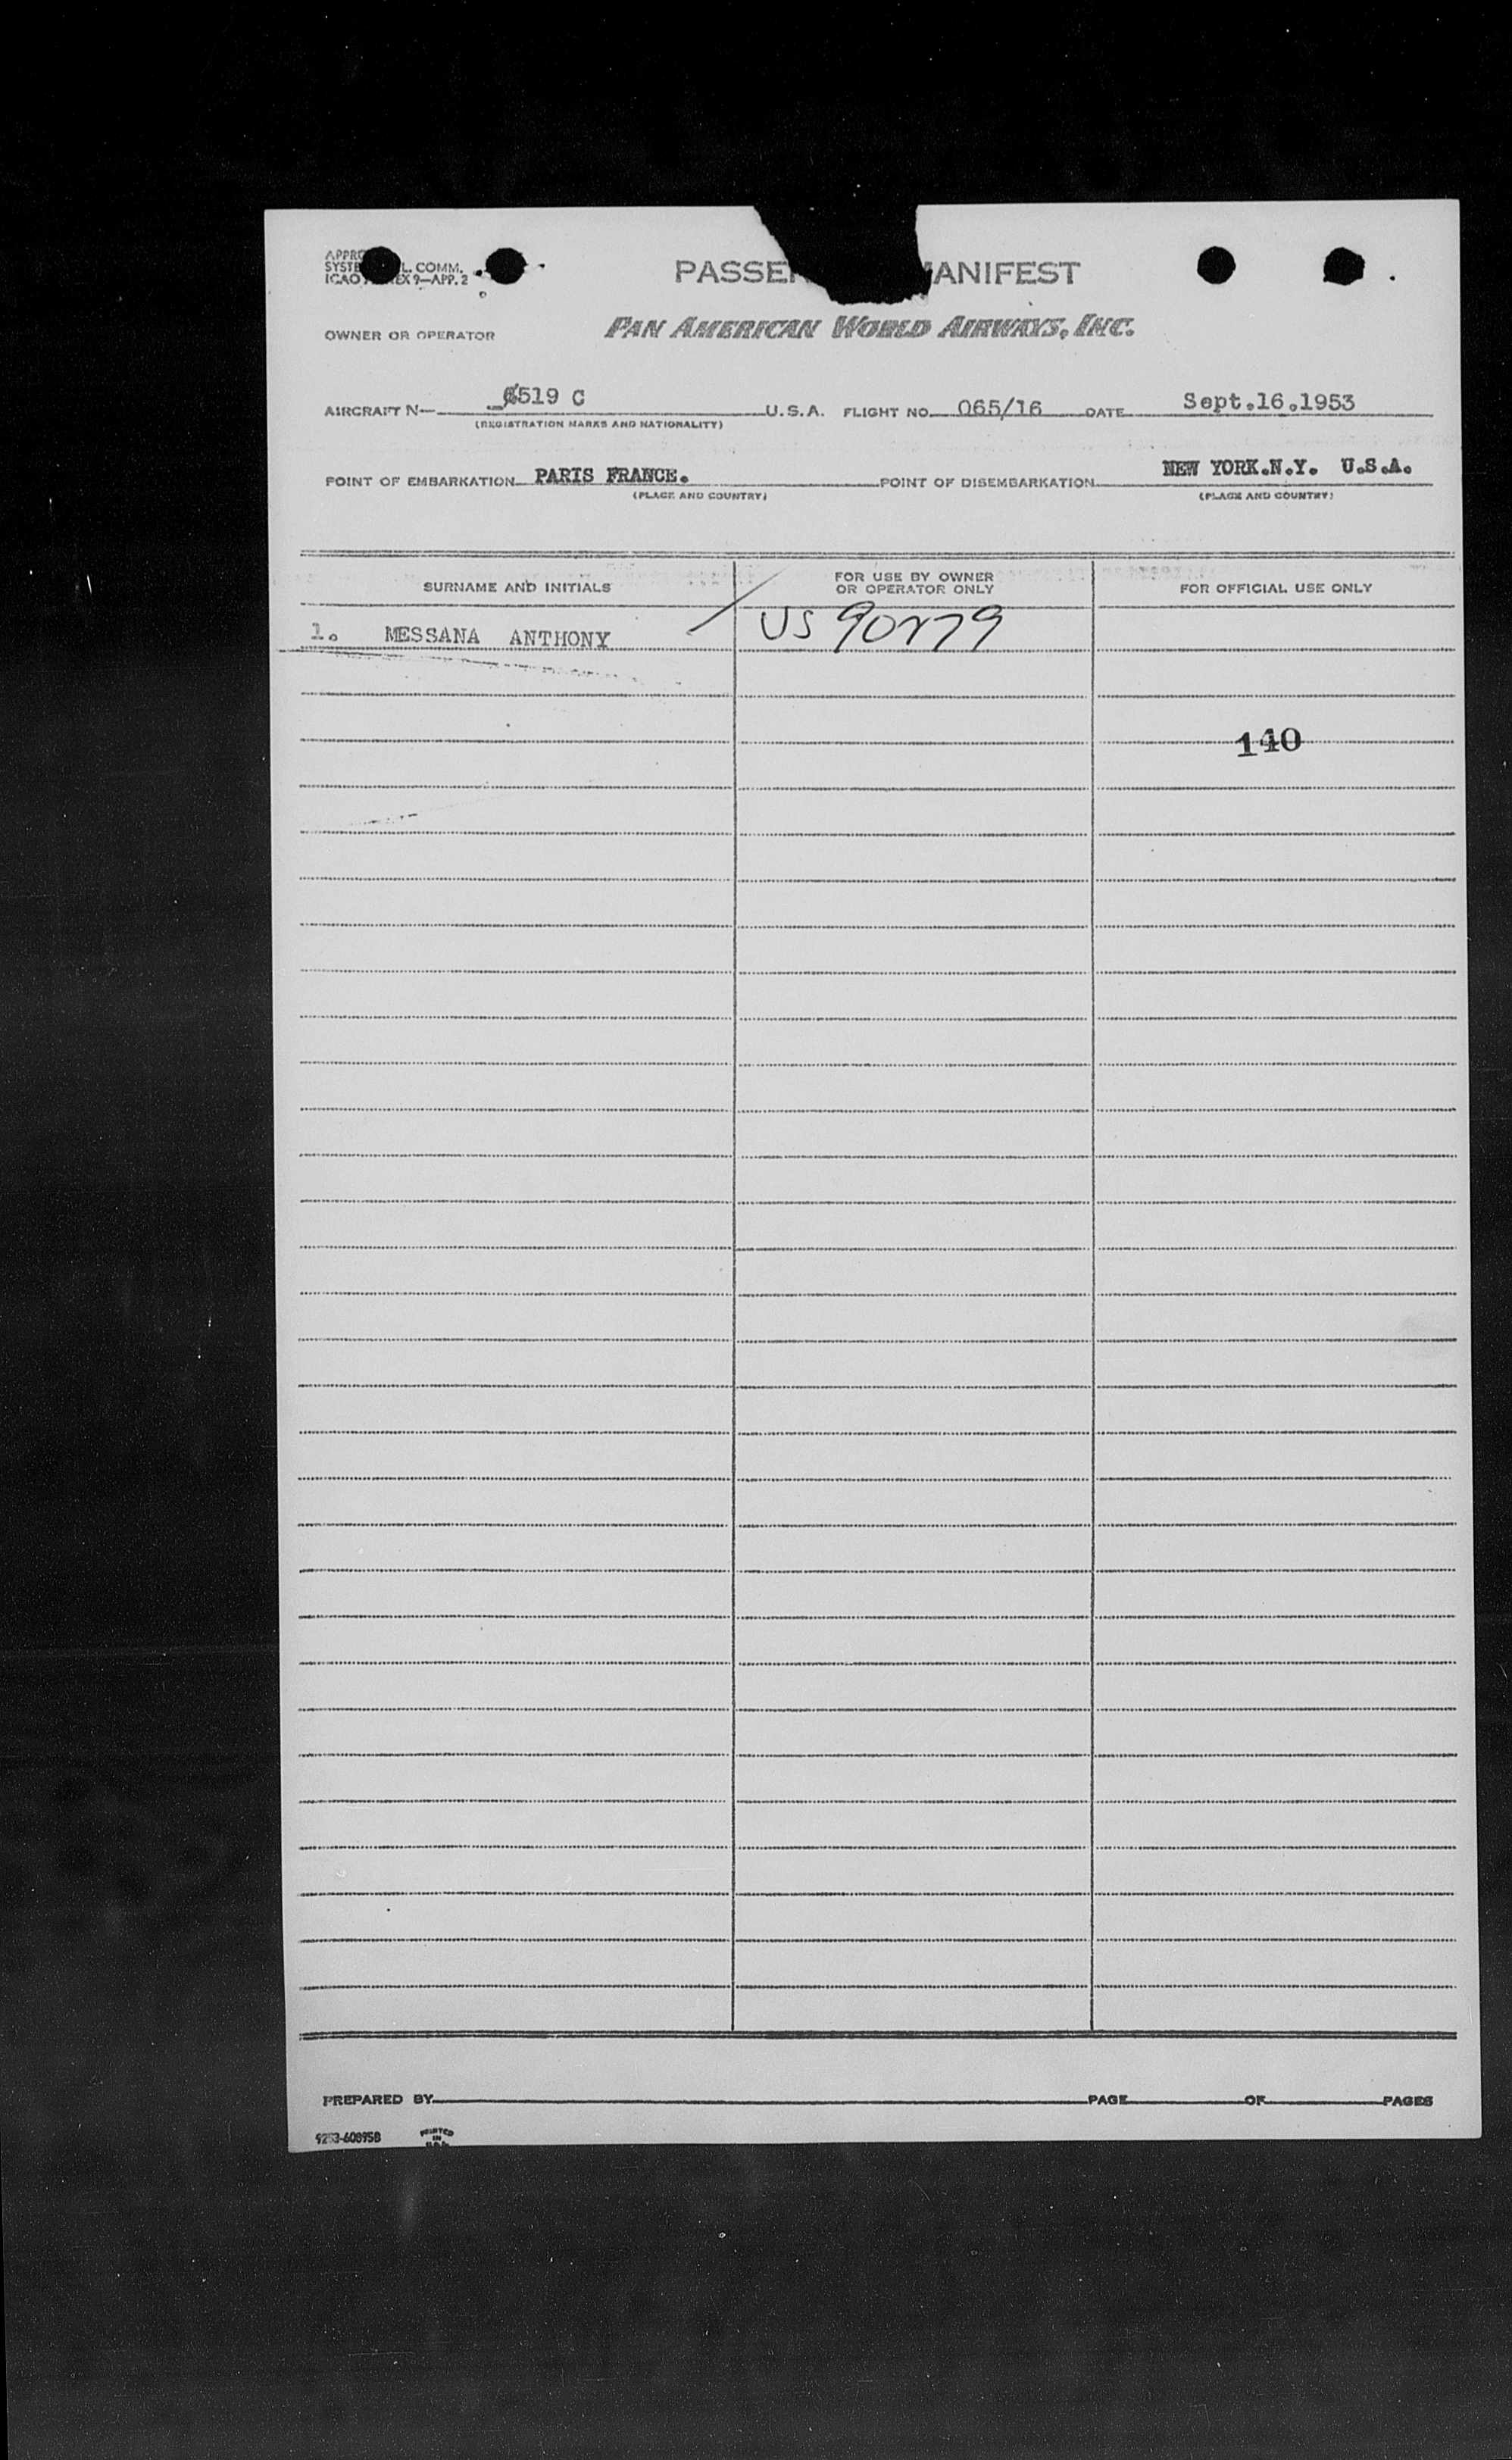 APPRO
SYSTE L. COMM.
ICAO EX 9—APP. 2
PASSE ANIFEST
OWNER OR OPERATOR PAN AMERICAN WORLD AIRWAYS, INC.
AIRCRAFT N— 6519 C U.S.A. FLIGHT NO. 065/16 DATE Sept.16.1953
(REGISTRATION MARKS AND NATIONALITY)
POINT OF EMBARKATION PARIS FRANCE. POINT OF DISEMBARKATION NEW YORK.N.Y. U.S.A.
(PLACE AND COUNTRY) (PLACE AND COUNTRY)
SURNAME AND INITIALS FOR USE BY OWNER OR OPERATOR ONLY FOR OFFICIAL USE ONLY
1. MESSANA ANTHONY US
140
PREPARED BY PAGE OF PAGES
PRINTED
IN
U.S.A.